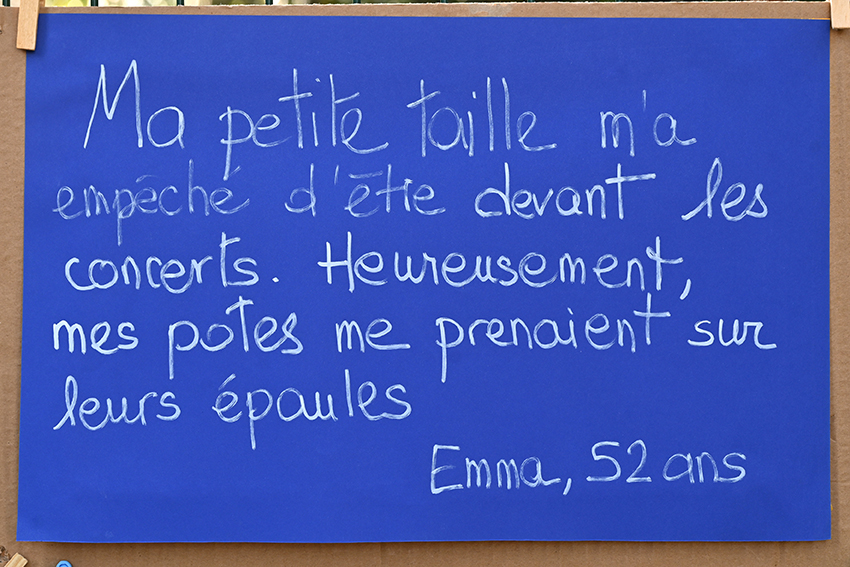 Ma petite taille m'a
empêché d'être devant les
concerts. Heureusement,
mes potes me prenaient sur
leurs épaules
Emma, 52 ans